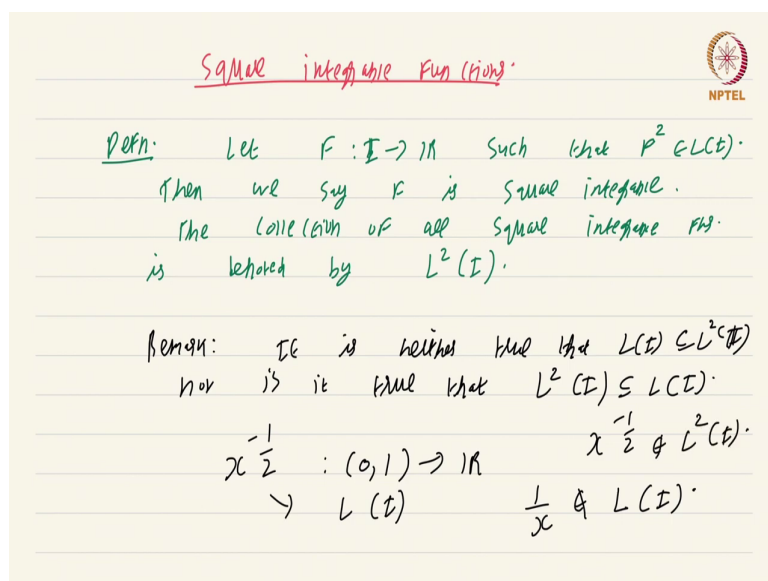 Square integrable Functions.
NPTEL
Defn. Let F : I → ℝ such that F² ∈ L(I).
Then we say F is square integrable.
The collection of all square integrable Fns.
is denoted by L²(I).
Remark: It is neither true that L(I) ⊆ L²(I)
nor is it true that L²(I) ⊆ L(I).
x^{-1/2} : (0,1) → ℝ x^{-1/2} ∉ L²(I).
↘ L(I) 1/x ∉ L(I).